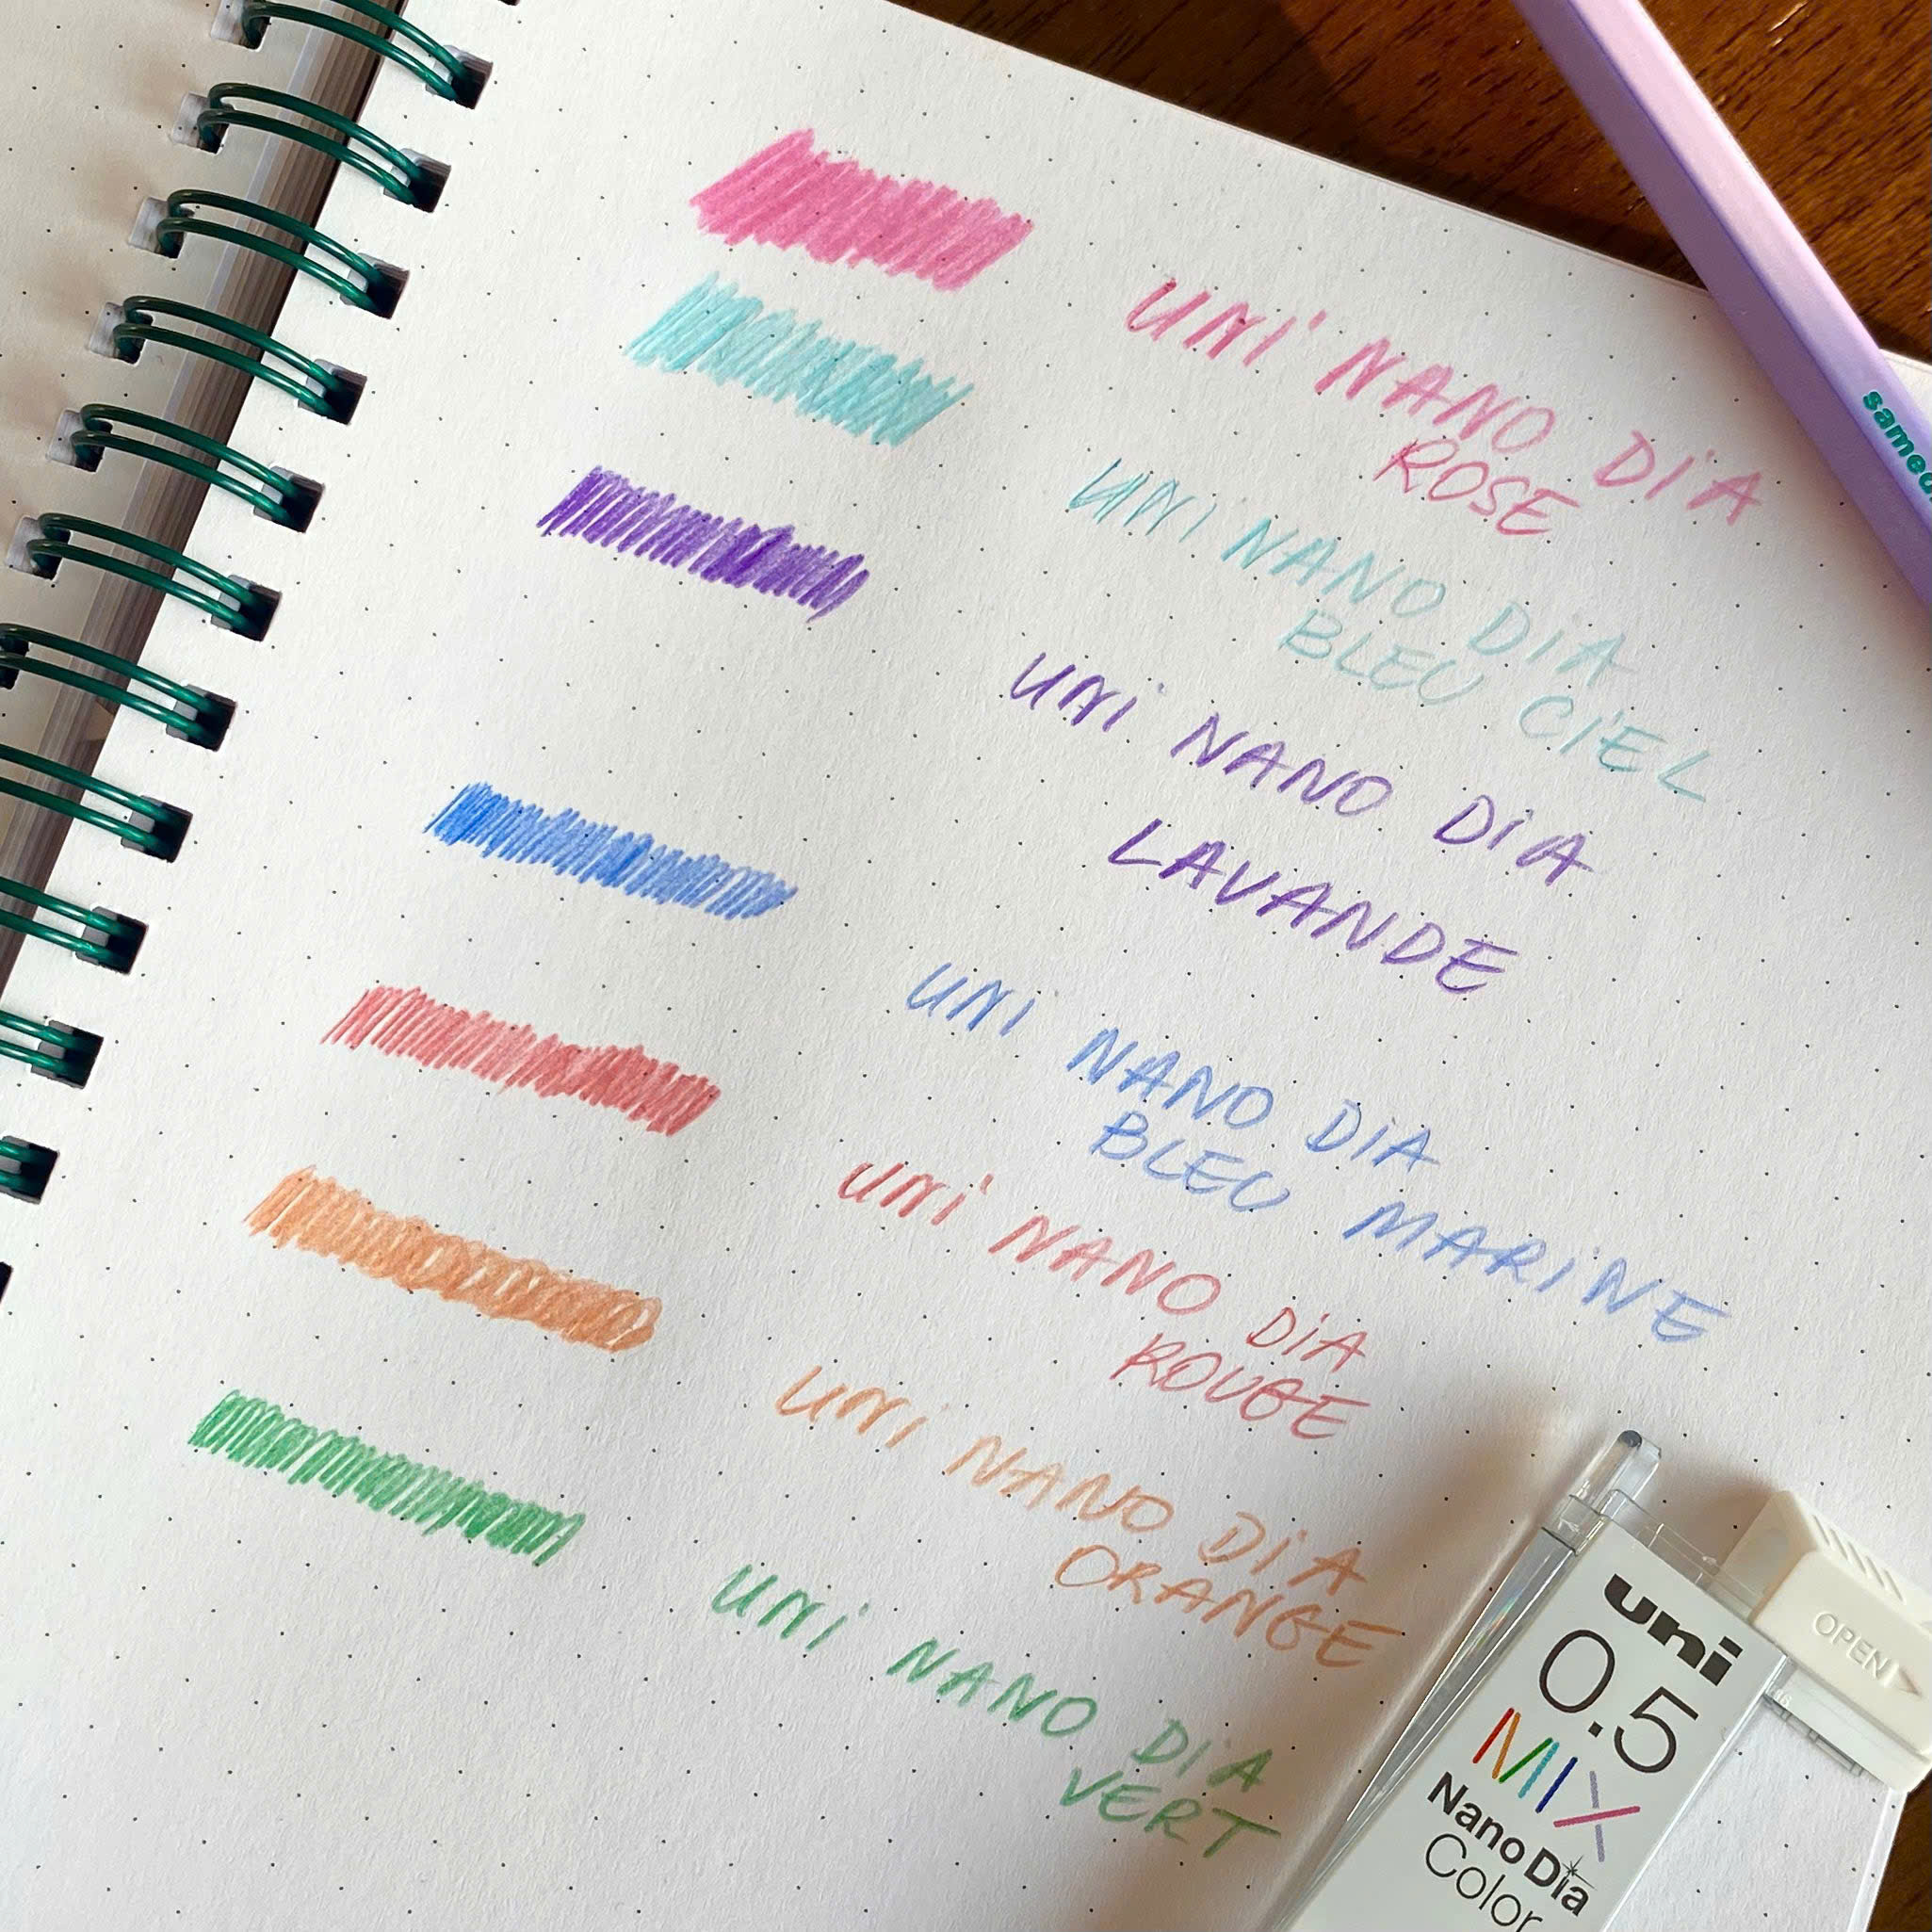 UNI NANO DIA
ROSE
UNI NANO DIA
BLEU CIEL
UNI NANO DIA
LAVANDE
UNI NANO DIA
BLEU MARINE
UNI NANO DIA
ROUGE
UNI NANO DIA
ORANGE
UNI NANO DIA
VERT
uni
0.5
MIX
Nano Dia
Color
OPEN